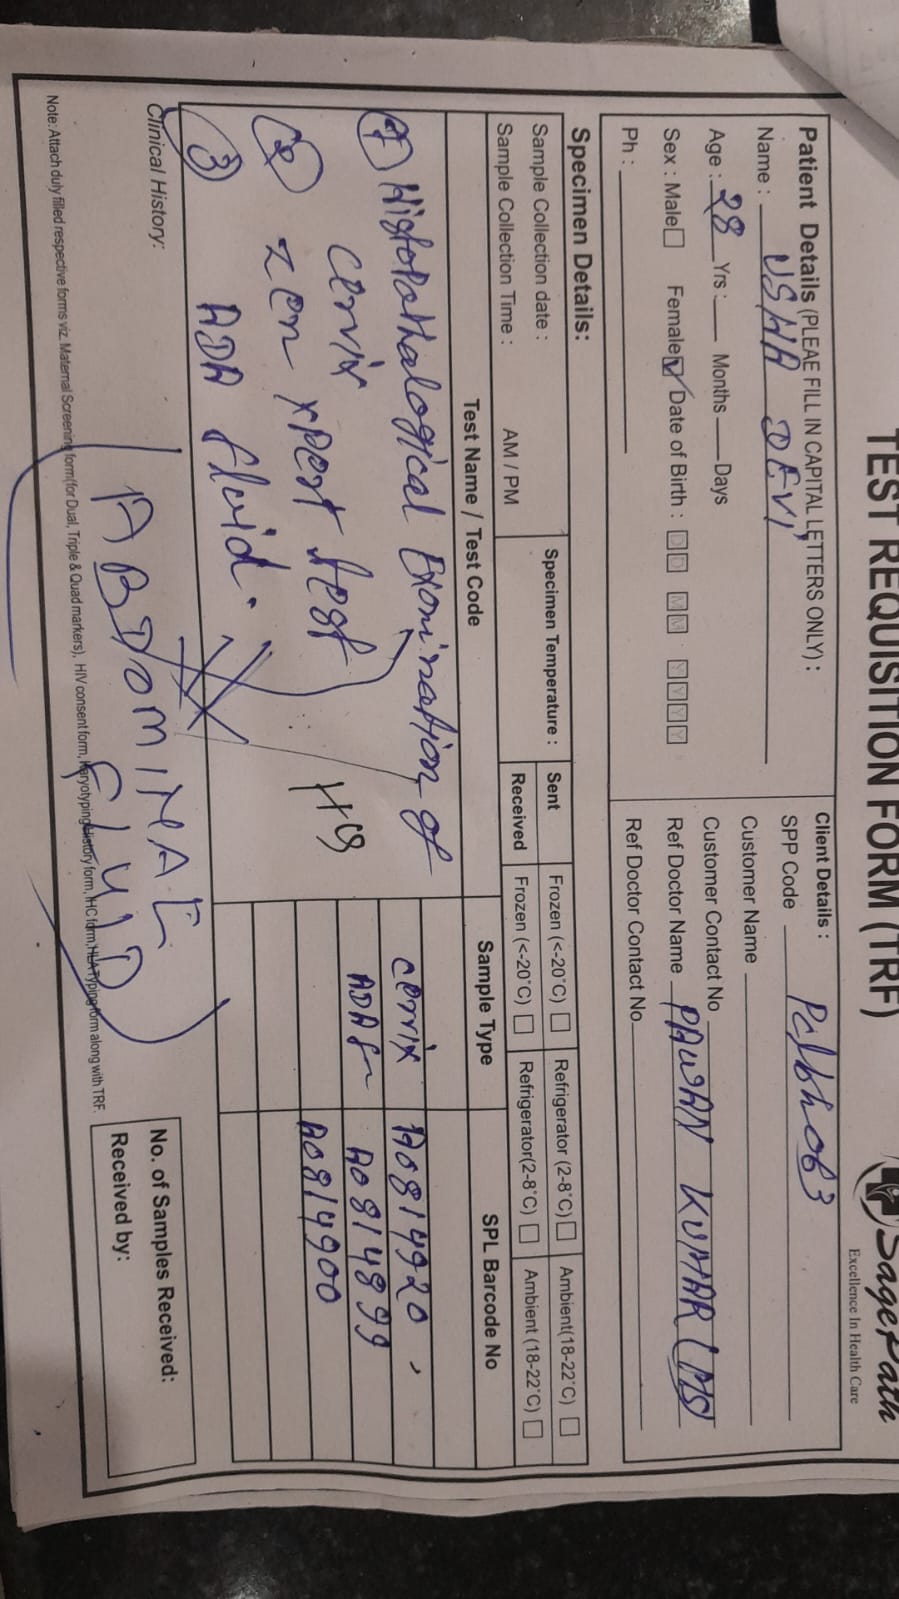 TEST REQUISITION FORM (TRF)
SagePath
Excellence In Health Care
Patient Details (PLEAE FILL IN CAPITAL LETTERS ONLY) :
Name : USHA DEVI
Age : 28 Yrs : Months Days
Sex : Male Female Date of Birth : D D M M Y Y Y Y
Ph :
Client Details :
SPP Code
Customer Name
Customer Contact No
Ref Doctor Name PAWAN KUMAR (MS)
Ref Doctor Contact No
Specimen Details:
Sample Collection date :
Sample Collection Time : AM / PM
Specimen Temperature :
Sent Frozen (<-20°C) Refrigerator (2-8°C) Ambient(18-22°C)
Received Frozen (<-20°C) Refrigerator(2-8°C) Ambient (18-22°C)
Test Name / Test Code Sample Type SPL Barcode No
1 Histopathalogical Examination of
cervix
2 Zen xpert test
3 ADA fluid.
cervix A0814920
ADA A0814899
A0814900
Clinical History:
ABDOMINAL
FLUID
No. of Samples Received:
Received by:
Note: Attach duly filled respective forms viz. Maternal Screening form(for Dual, Triple & Quad markers), HIV consent form, Karyotyping History form, IHC form, HLA Typing form along with TRF.